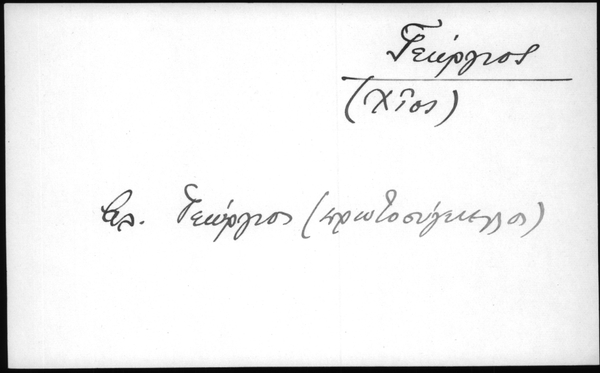 Γεώργιος
(Χῖος)
βλ. Γεώργιος (πρωτοσύγκελλος)